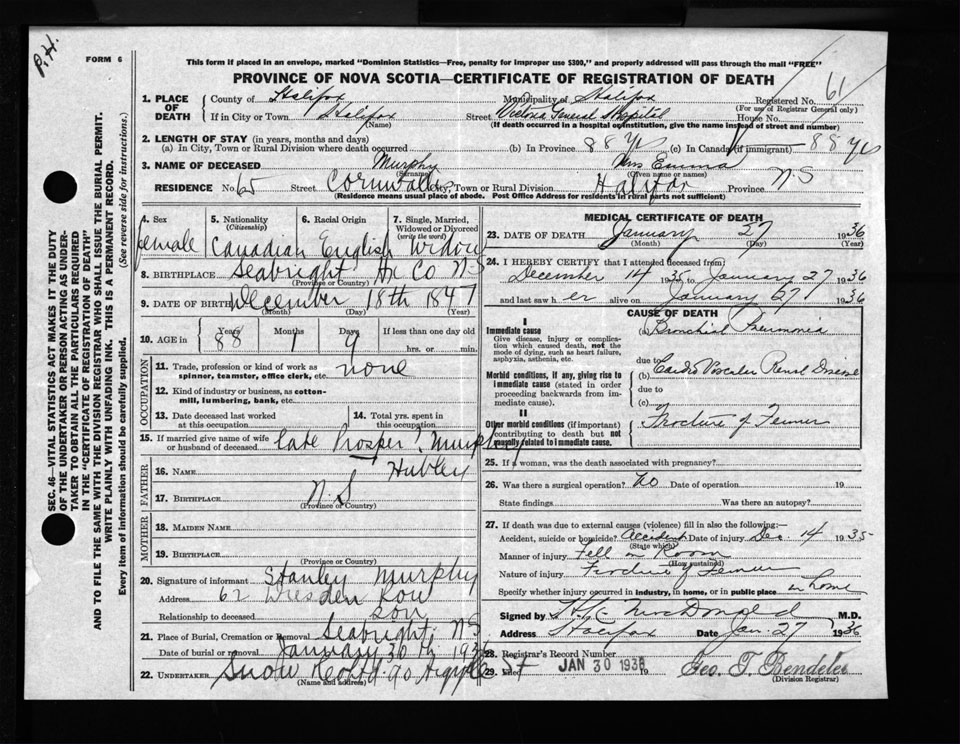 P.H.
FORM 6
This form if placed in an envelope, marked "Dominion Statistics—Free, penalty for improper use $300," and properly addressed will pass through the mail "FREE"
PROVINCE OF NOVA SCOTIA—CERTIFICATE OF REGISTRATION OF DEATH
61
1. PLACE OF DEATH County of Halifax Municipality of Halifax Registered No.
(For use of Registrar General only)
If in City or Town Halifax Street Victoria General Hospital House No.
(Name) (If death occurred in a hospital or institution, give the name instead of street and number)
2. LENGTH OF STAY (in years, months and days)
(a) In City, Town or Rural Division where death occurred (b) In Province 88 yrs (c) In Canada (if immigrant) 88 yrs
3. NAME OF DECEASED Murphy Mrs Emma
(Surname) (Given name or names)
RESIDENCE No. 65 Street Cornwallis City, Town or Rural Division Halifax Province N S
(Residence means usual place of abode. Post Office Address for residents in rural parts not sufficient)
4. Sex female
5. Nationality (Citizenship) Canadian
6. Racial Origin English
7. Single, Married, Widowed or Divorced (write the word) Widow
8. BIRTHPLACE Seabright Hx Co N-S
(Province or Country)
9. DATE OF BIRTH December 18th 1847
(Month) (Day) (Year)
10. AGE in Years 88 Months 1 Days 9 If less than one day old
hrs. or min.
OCCUPATION
11. Trade, profession or kind of work as spinner, teamster, office clerk, etc. none
12. Kind of industry or business, as cotton-mill, lumbering, bank, etc.
13. Date deceased last worked at this occupation
14. Total yrs. spent in this occupation
15. If married give name of wife or husband of deceased late Prosper Murphy
FATHER
16. NAME Hubley
17. BIRTHPLACE N.S
(Province or Country)
MOTHER
18. MAIDEN NAME
19. BIRTHPLACE
(Province or Country)
20. Signature of informant Stanley Murphy
Address 62 Dresden Row
Relationship to deceased son
21. Place of Burial, Cremation or Removal Seabright N.S
Date of burial or removal January 30th 1936
22. UNDERTAKER Snow & Co Ltd 90 Argyle St
(Name and address)
MEDICAL CERTIFICATE OF DEATH
23. DATE OF DEATH January 27 1936
(Month) (Day) (Year)
24. I HEREBY CERTIFY that I attended deceased from:
December 14 1935 to January 27 1936
and last saw h er alive on January 27 1936
CAUSE OF DEATH
I
Immediate cause (a) Bronchial Pneumonia
Give disease, injury or complication which caused death, not the mode of dying, such as heart failure, asphyxia, asthenia, etc.
due to
Morbid conditions, if any, giving rise to immediate cause (stated in order proceeding backwards from immediate cause). (b) Cardio Vascular Renal Disease
due to
(c)
II
Other morbid conditions (if important) contributing to death but not causally related to immediate cause. Fracture of Femur
25. If a woman, was the death associated with pregnancy?
26. Was there a surgical operation? no Date of operation 19
State findings Was there an autopsy?
27. If death was due to external causes (violence) fill in also the following:—
Accident, suicide or homicide? Accident Date of injury Dec. 14 1935
(State which)
Manner of injury Fell in Room
(How sustained)
Nature of injury Fracture of Femur
Specify whether injury occurred in industry, in home, or in public place in home
Signed by MacDonald M.D.
Address Halifax Date Jan. 27 1936
28. Registrar's Record Number
29. Filed JAN 30 1936 19 Geo. T. Bendeler
(Division Registrar)
SEC. 46—VITAL STATISTICS ACT MAKES IT THE DUTY
OF THE UNDERTAKER OR PERSON ACTING AS UNDER-
TAKER TO OBTAIN ALL THE PARTICULARS REQUIRED
IN THE "CERTIFICATE OF REGISTRATION OF DEATH"
AND TO FILE THE SAME WITH THE DIVISION REGISTRAR WHO SHALL ISSUE THE BURIAL PERMIT.
WRITE PLAINLY WITH UNFADING INK. THIS IS A PERMANENT RECORD.
Every item of information should be carefully supplied. (See reverse side for instructions.)